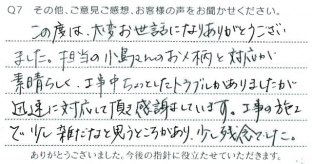 Q7 その他、ご意見ご感想、お客様の声をお聞かせください。
この度は、大変お世話になりありがとうござい
ました。担当の小島さんのお人柄と対応が
素晴らしく、工事中ちょっとしたトラブルがありましたが
迅速に対応して頂き感謝しています。工事の施工
で少し雑だなと思うところがあり、少し残念でした。
ありがとうございました。今後の指針に役立たせていただきます。